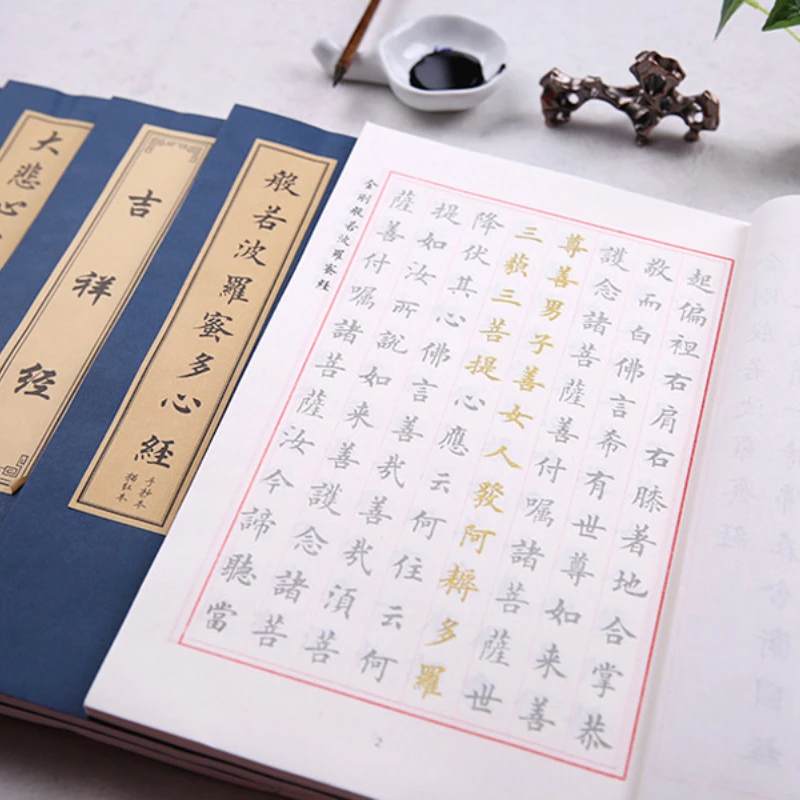 起偏袒右肩右膝著地合掌恭
敬而白佛言希有世尊如来善
護念諸菩薩善付嘱諸菩薩世
尊善男子善女人發阿耨多羅
三藐三菩提心應云何住云何
降伏其心佛言善哉善哉湏菩
提如汝所說如来善護念諸菩
薩善付嘱諸菩薩汝今諦聽當
金剛般若波羅蜜經
2
般若波羅蜜多心經
手抄本
描紅本
吉祥經
大悲心